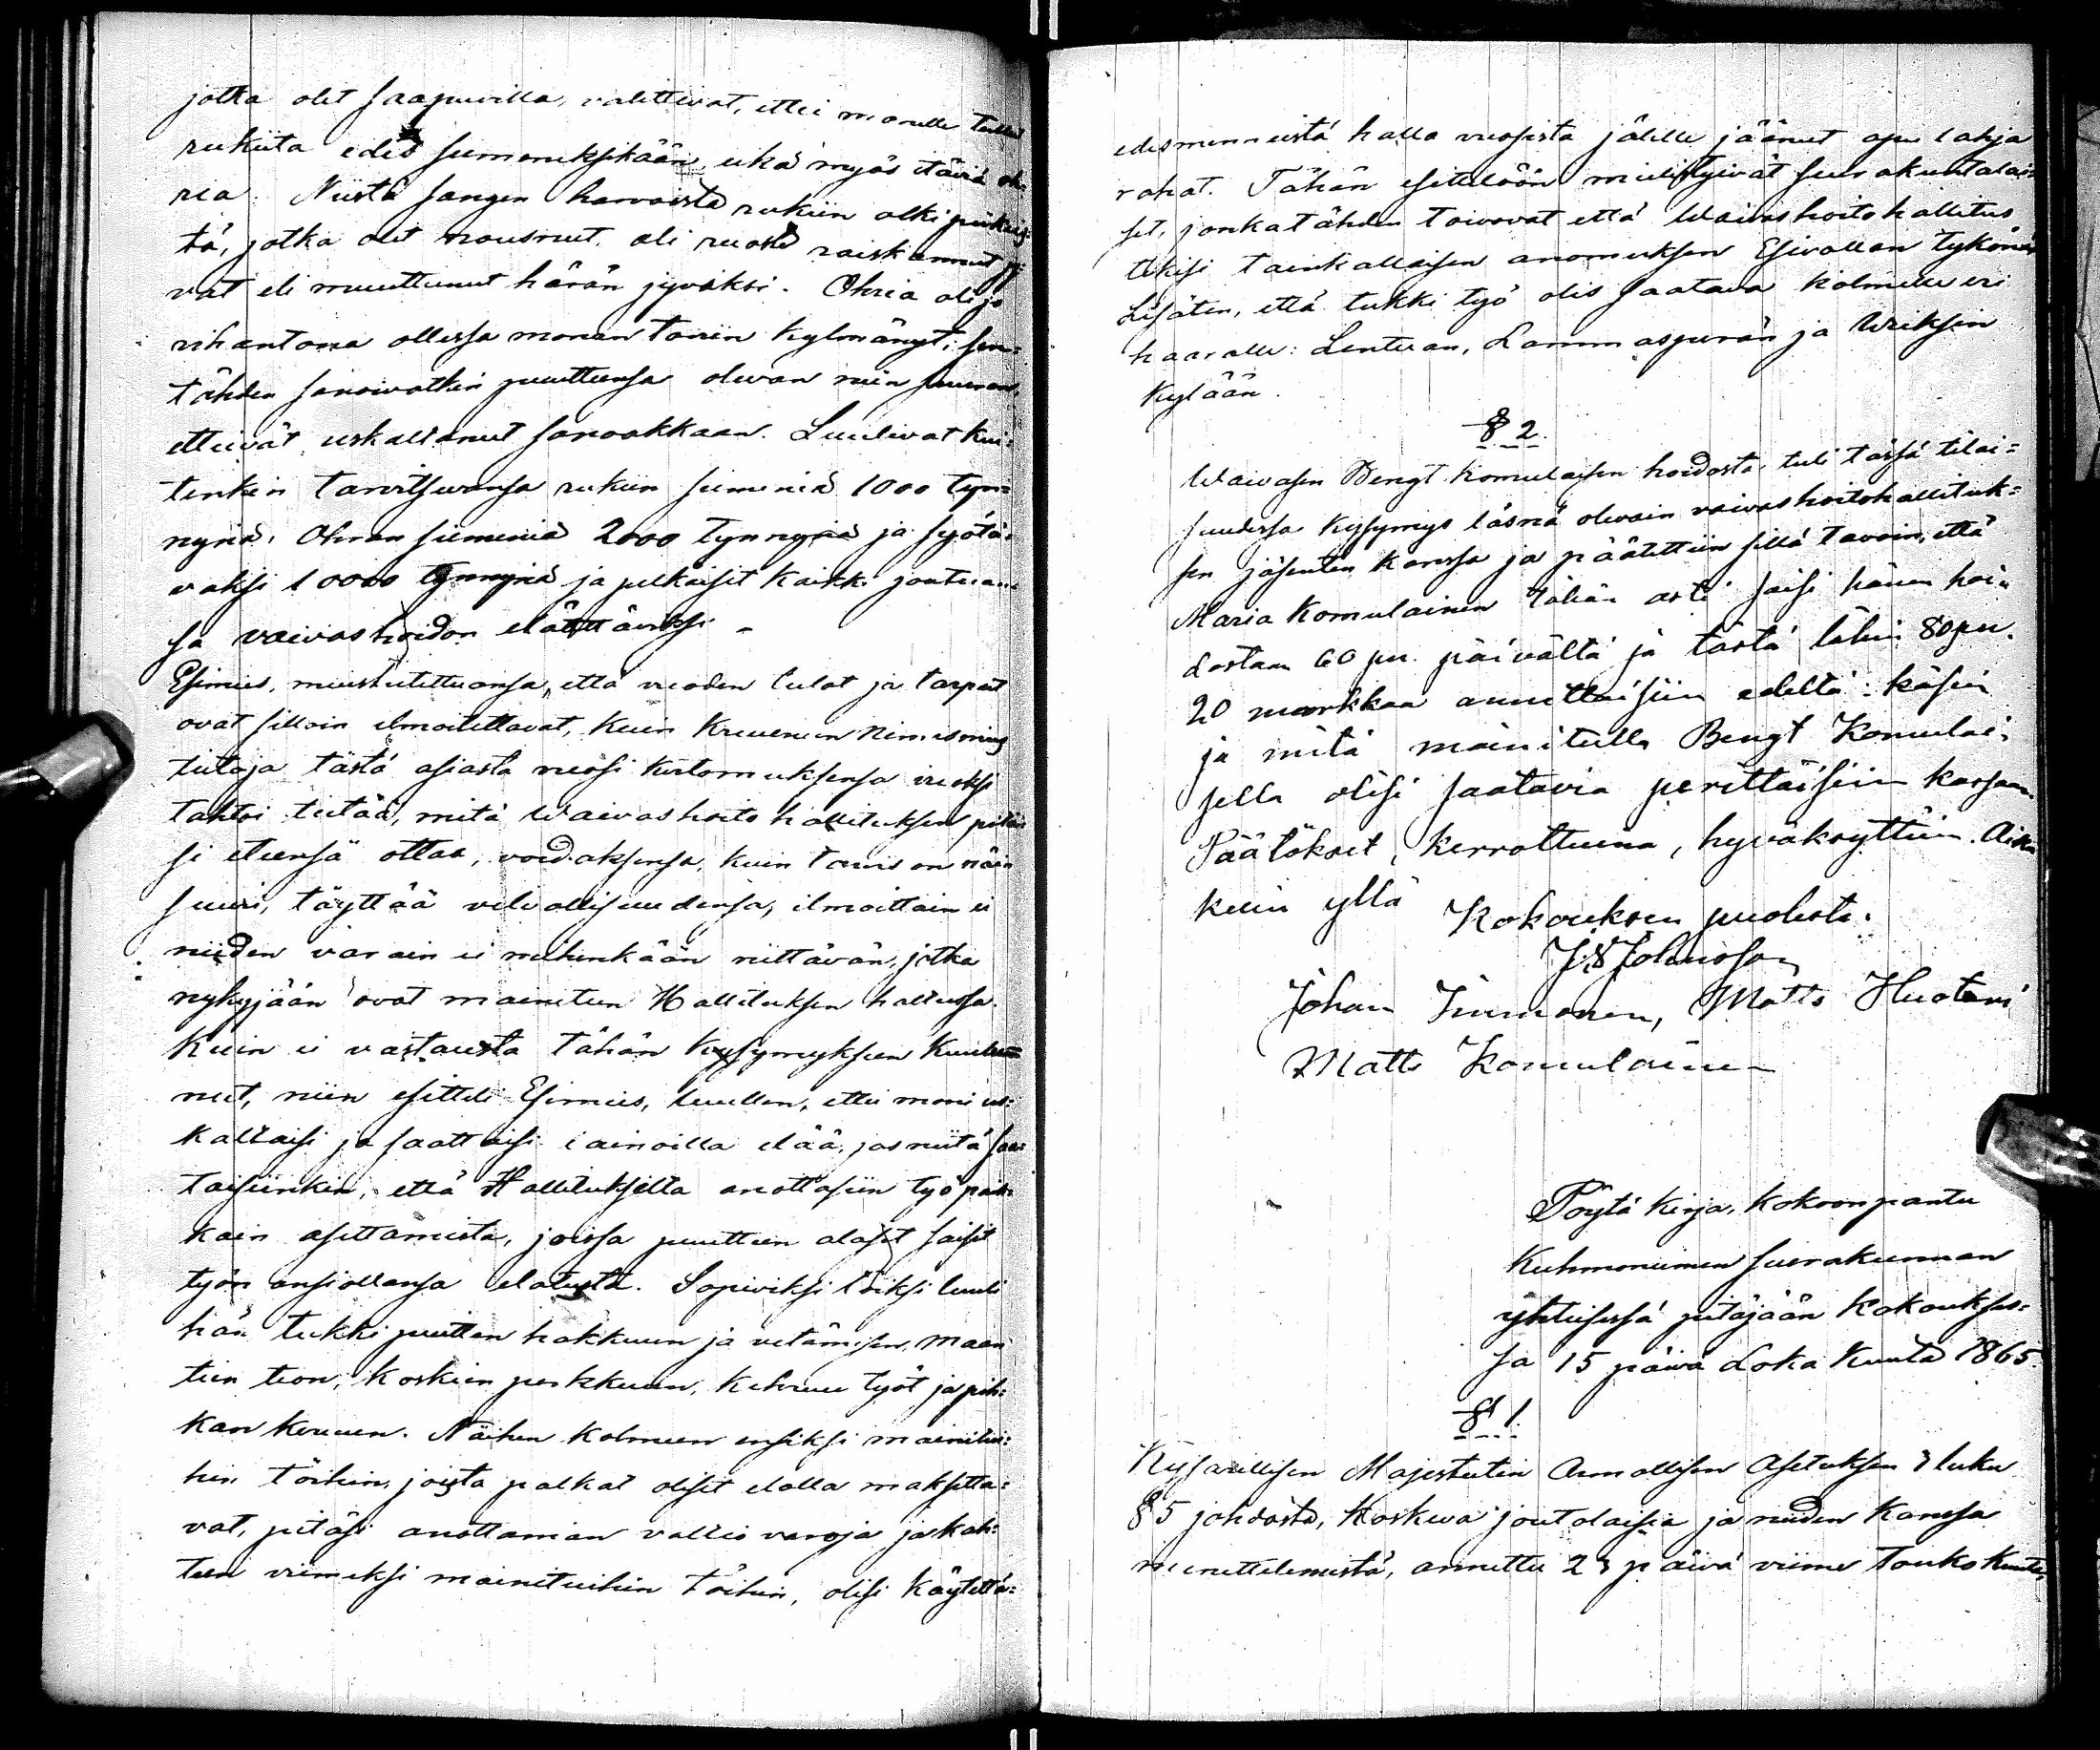 jotka olit saapuvilla, valittivat, ettei monelle tullut
rukiita edes siemeneksikään, eikä myös itäviä oh=
ria. Niistä sangen harvoista rukiin olki pükeis=
tä, jotka olit nousnut, oli ruoste raiskannut jy
vät eli muuttunut härän jyväksi. Ohria oli jo
rihantona ollessa monen tonin kylmänyt; sen=
tähden sanoivatkin puutteensa olevan niin suuren,
etteivät uskaltanut sanoakkaan. Luulivat kui=
tenkin tarvitsevansa rukiin siemeniä 1000 tyn=
nyriä, Ohran siemeniä 2000 tynnyriä ja syötä=
väksi 10000 tynnyriä ja pelkäisit kaikki joutuvan=
sa vaivashoidon elätettäviksi –
Esimies, muistutettuansa, että vuoden tulot ja tarpeet
ovat silloin ilmoitettavat, kuin Kruunun nimismies
tietoja tästä asiasta viisi kertomuksensa vuoksi
tahtoi tietää, mitä Waivashoito hallituksen pitäi
si eteensä ottaa, voidaksensa, kuin tarvis on näin
suuri, täyttää velvollisuudensa, ilmoittain ei
niiden varain ei mihinkään riittävän, jotka
nykyjään ovat mainitun Hallituksen hallussa.
Kuin ei vastausta tähän kysymykseen kuulu=
nut, niin esitteli Esimies, luullen, ettei moni us=
kaltaisi ja saattaisi lainoilla elää, jos niitä saa=
taisiinkin, että Hallitukselta anottasiin työ paik=
kain asettamista, joissa puutteen alaset saisit
työn ansiollansa elatusta. Sopiviksi töiksi luuli
hän tukki puitten hakkuun ja vetämisen, maan
tien teon, koskien perkkuun, kehruu työt ja pih=
kan keruun. Näihin kolmeen ensiksi mainitui=
hin töihin, joista palkat olisit elolla maksetta=
vat, pitäsi anottaman valtio varoja ja kah=
teen viimeksi mainituihin töihin, olisi käytettä=
edesmenneistä halla vuosista jälelle jäänet apu lahja
rahat. Tähän esitelöön mielistyivät seurakuntalai=
set, jonkatähden toivovat että Waivashoitohallitus
tekisi tainkallaisen anomuksen Esivallan tykönä
Lisäten, että tukki työ olis saatava kolmelle eri
haaralle: Lentuan, Lammasperän ja Wieksin
kylään.
§ 2.
Waivasen Bengt Komulaisen hoidosta tuli tässä tilai=
suudessa kysymys läsnä olevain vaivashoitohallituk=
sen jäsenten kanssa ja päätettiin sillä tavoin, että
Maria Komulainen tähän asti saisi hänen hoi=
dostaan 60 pen. päivältä ja tästä lähin 80 pen.
20 markkaa annettaisiin edeltä käsin
ja mitä mainitulla Bengt Komulai=
sella olisi saatavia perittäisiin kassaan
Päätökset, kerrottuina, hyväksyttiin. Aika
kuin yllä
Kokouksen puolesta.
J. Johnsson
Johan Timonen, Matts Huotari
Matts Komulainen
Pöytä kirja, kokoonpantu
Kuhmoniemen seurakunnan
yhteisessä pitäjään kokoukses=
sa 15 päivä Loka kuuta 1865.
§ 1.
Keisarillisen Majesteetin Armollisen Asetuksen 3 luku
§ 5 johdosta, koskeva joutolaisia ja niiden kanssa
menettelemistä, annettu 23 päivä viime Toukokuuta,